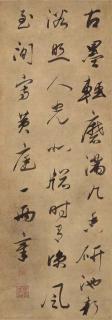 古墨輕磨滿几香研池新
浴照人光北牕時有涼風
至閒寫黃庭一兩章